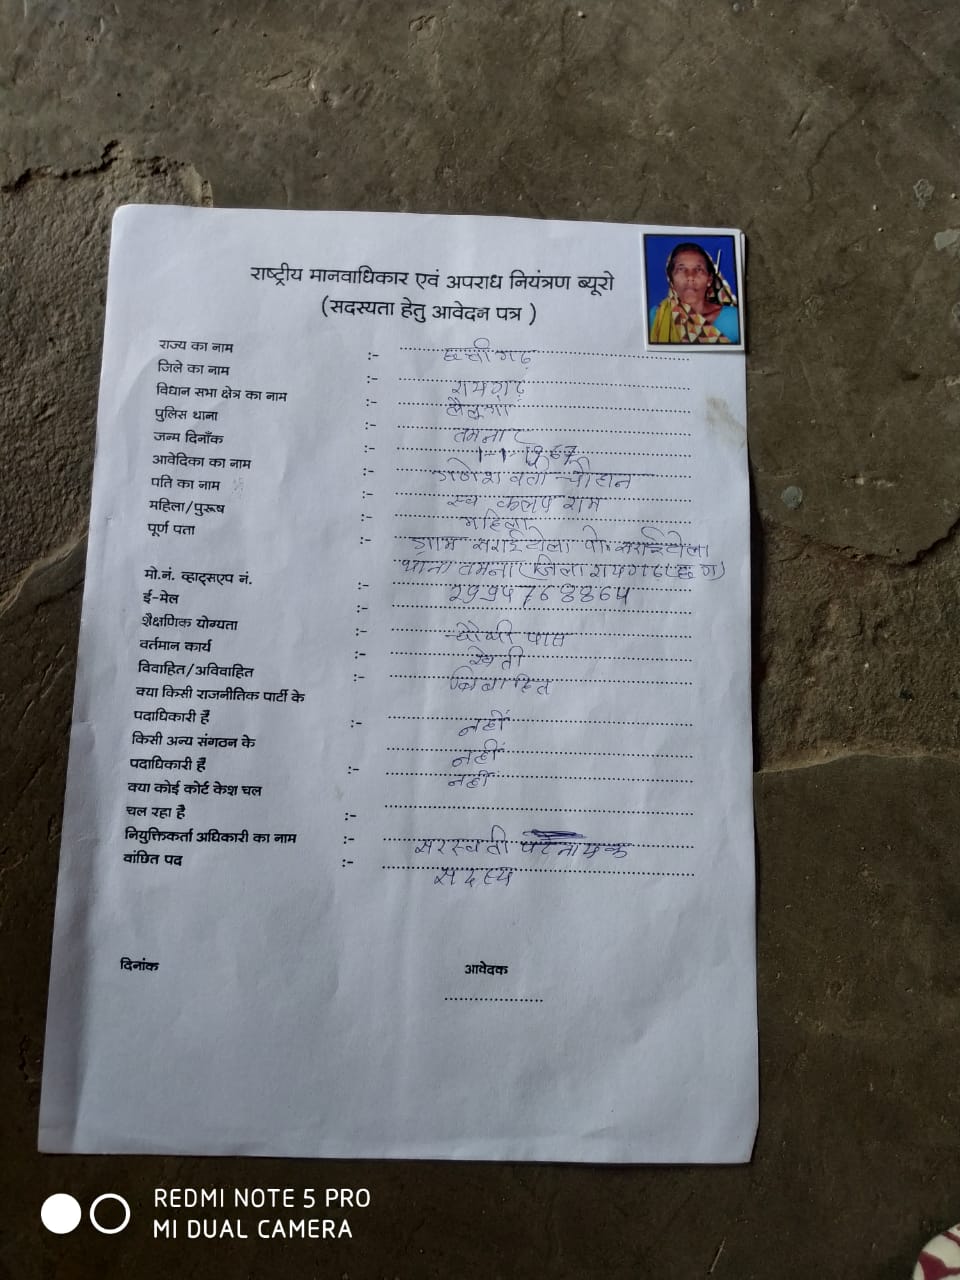 राष्ट्रीय मानवाधिकार एवं अपराध नियंत्रण ब्यूरो
(सदस्यता हेतु आवेदन पत्र )
राज्य का नाम :-
जिले का नाम :- रायगढ़
विधान सभा क्षेत्र का नाम :-
पुलिस थाना :- तमनार
जन्म दिनाँक :- 1-1-1967
आवेदिका का नाम :- गणेशवती चौहान
पति का नाम :- स्व कलप राम
महिला/पुरूष :- महिला
पूर्ण पता :- ग्राम सराईटोला पो. सराईटोला
थाना तमनार जिला रायगढ़ (छ ग)
मो.नं. व्हाट्सएप नं. :-
ई-मेल :-
शैक्षणिक योग्यता :- चौथी पास
वर्तमान कार्य खेती
विवाहित/अविवाहित :- विवाहित
क्या किसी राजनीतिक पार्टी के
पदाधिकारी हैं :- नहीं
किसी अन्य संगठन के नहीं
पदाधिकारी हैं :- नहीं
क्या कोई कोर्ट केश चल
चल रहा है
नियुक्तिकर्ता अधिकारी का नाम :- सरस्वती पटनायक
वांछित पद :- सदस्य
दिनांक आवेदक
REDMI NOTE 5 PRO
MI DUAL CAMERA